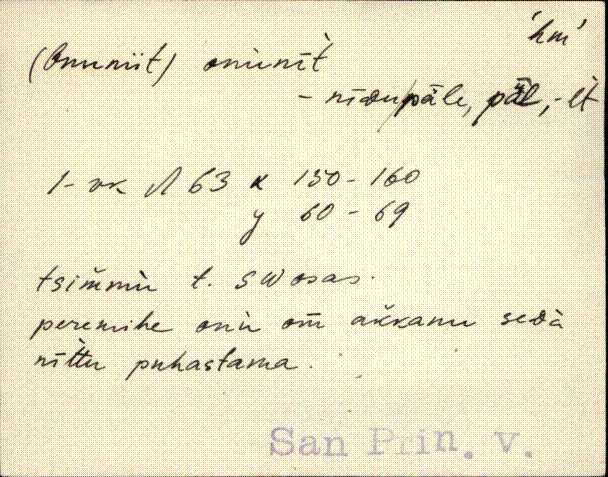 'hm'
(Onuniit) onùnīt̀
– nīdu/päle, päl, -lt
1-vk N 63 x 150-160
y 60-69
tsimmù t. SW osas.
peremihe onù om akkanu sedà
nīttu puhastama.
San Prin. v.